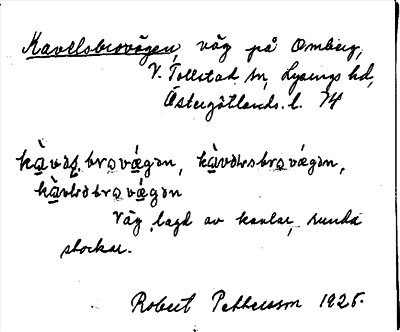 Kavelsbrovägen, väg på Omberg,
V. Tollstad sn, Lysings hd,
Östergötlands. l. 74
kàvəls brovǻgən, kàvələsbrovǻgən,
kàvləsbrovǻgən
Väg lagd av kavlar, runda
stockar.
Robert Pettersson 1925.